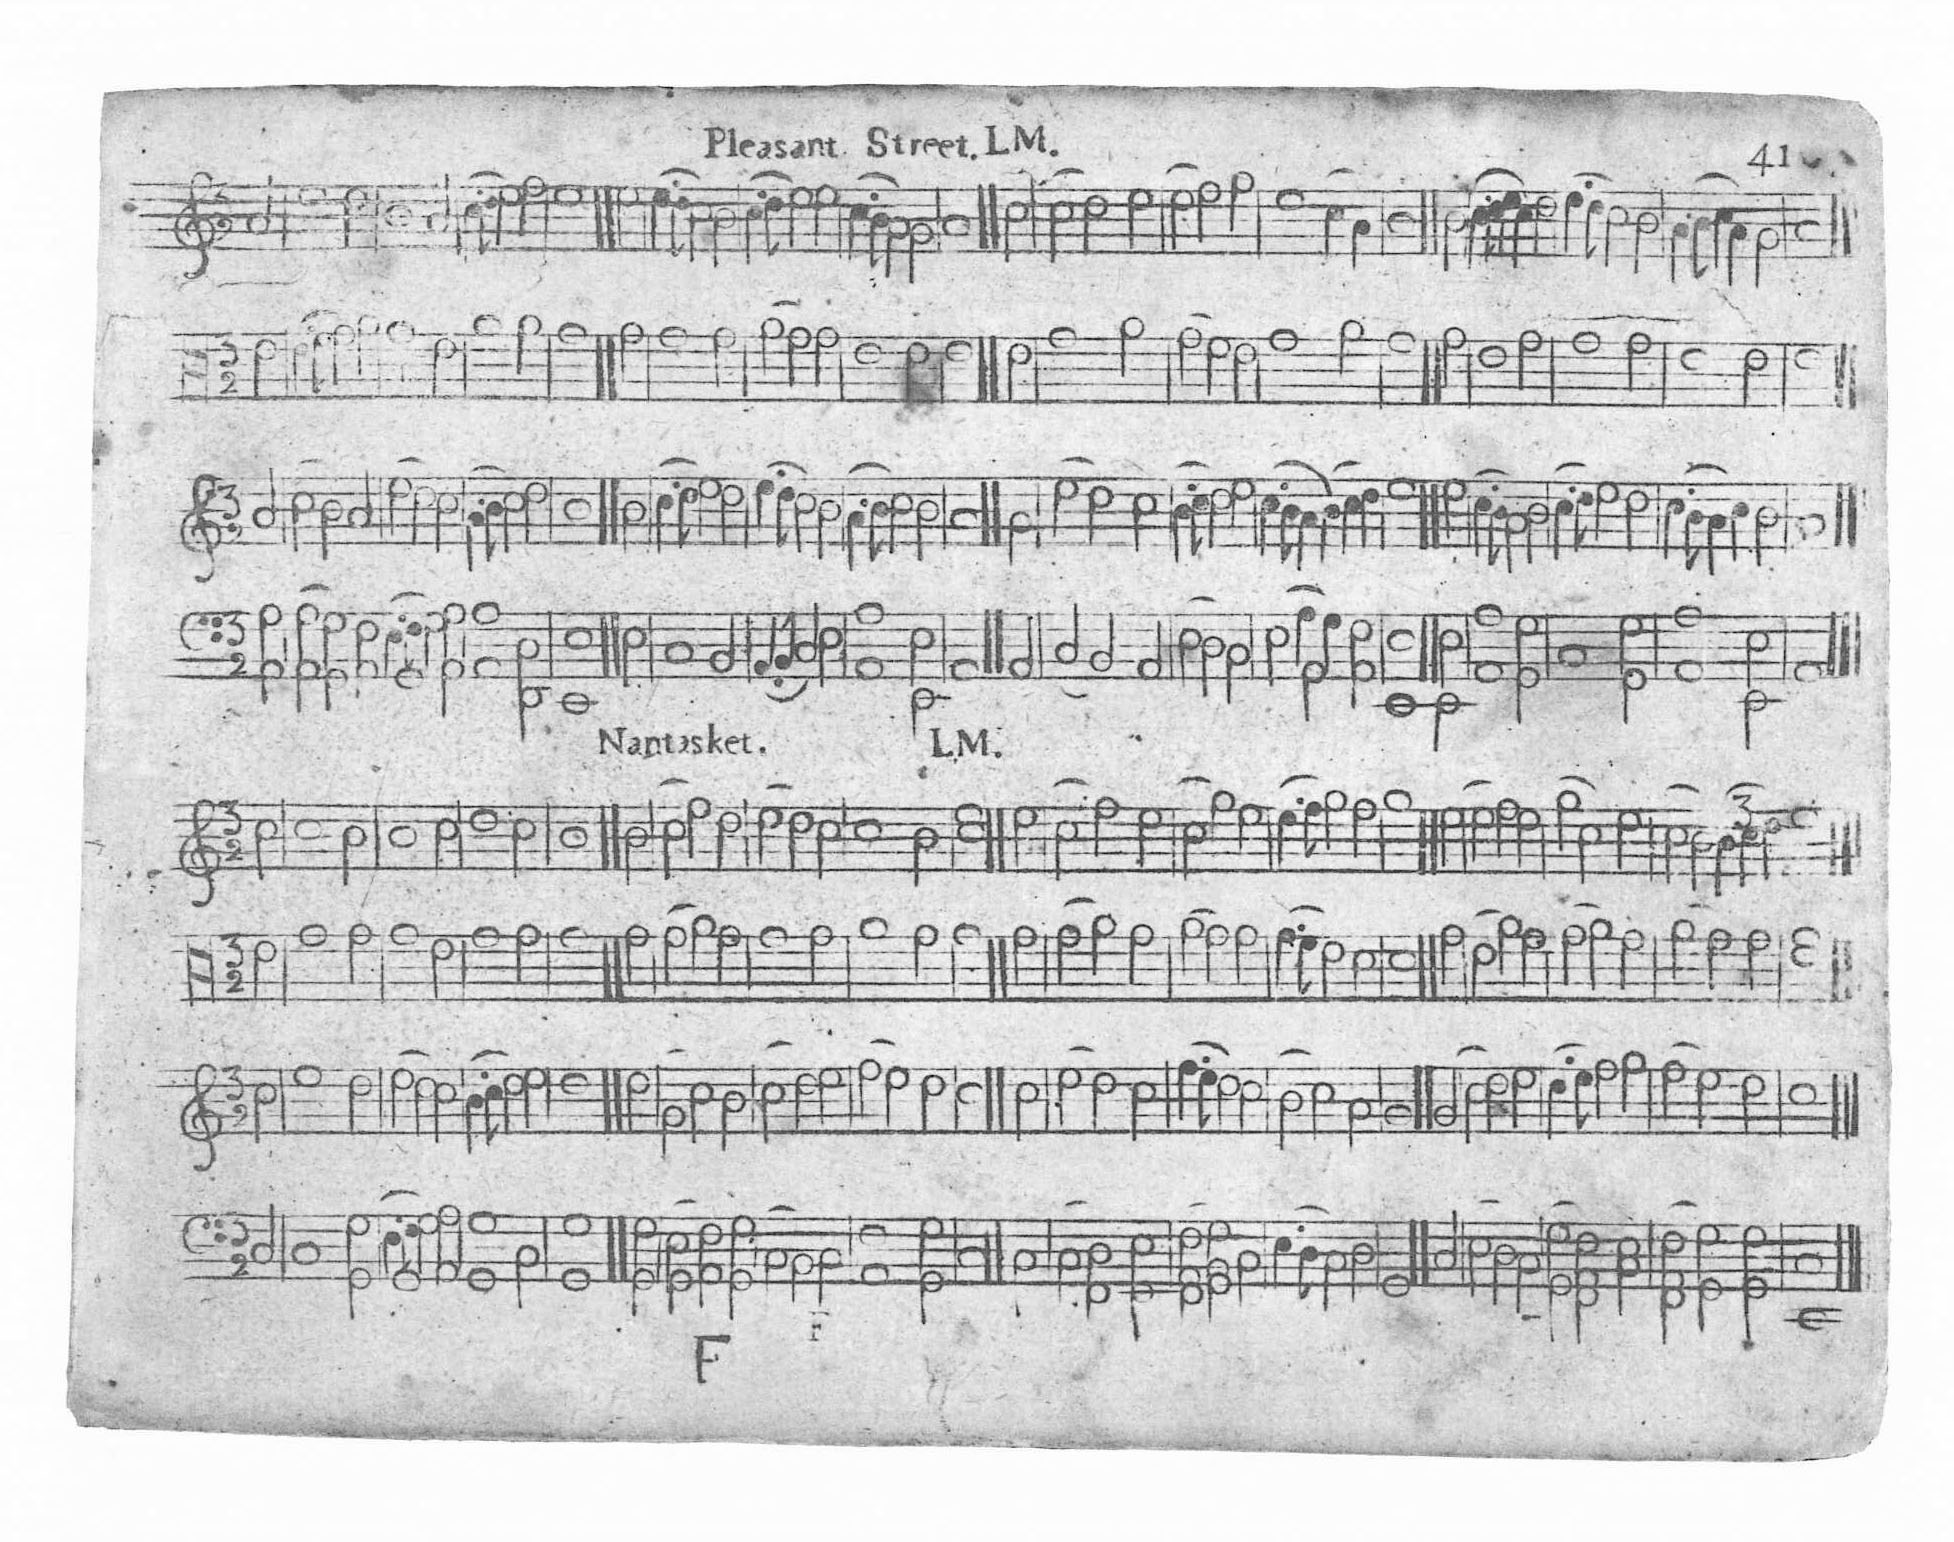 Pleasant Street. LM.
41
3
2
3
2
3
2
3
2
Nantasket. L.M.
3
2
3
3
2
3
2
3
2
F
F